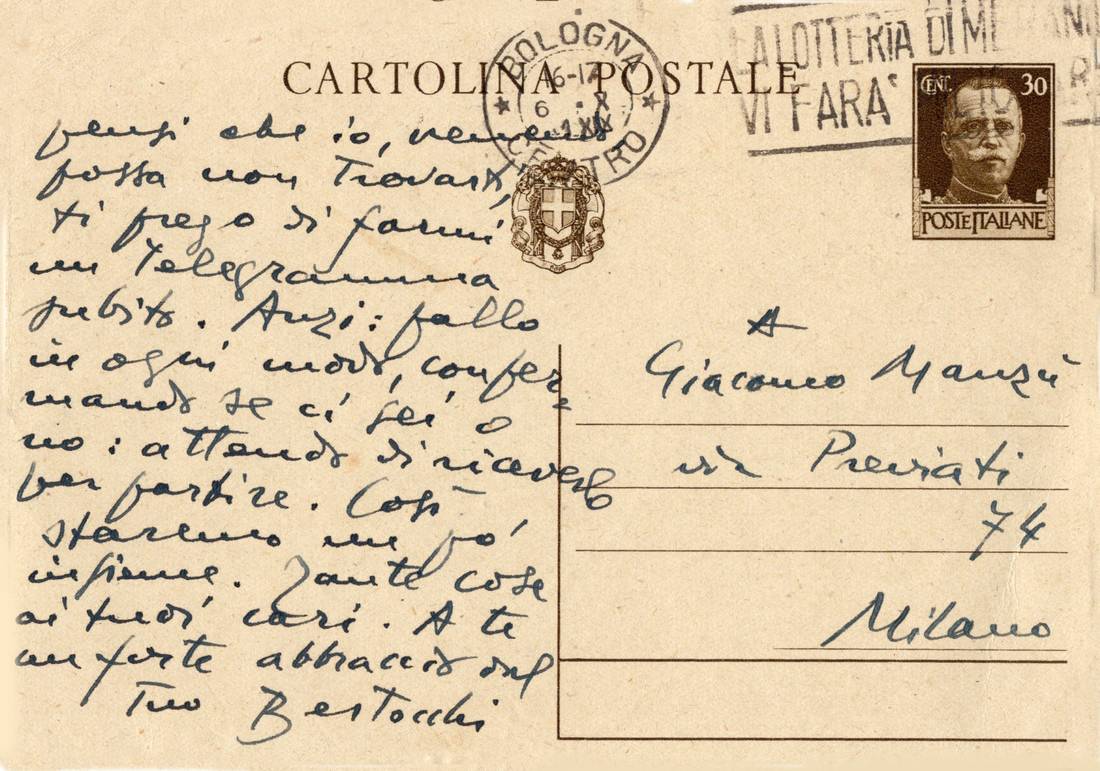 CARTOLINA POSTALE
BOLOGNA
16-17
6 . X
XIX
CENTRO
LA LOTTERIA DI
VI FARA'
CENT. 30
POSTE ITALIANE
pensi che io, venendo
possa non trovarti,
ti prego di farmi
un telegramma
subito. Anzi: fallo
in ogni modo, confer=
mando se ci sei o
no: attendo di riceverlo
per partire. Così
staremo un pó
insieme. Tante cose
ai tuoi cari. A te
un forte abbraccio dal
Tuo Bertocchi
A
Giacomo Manzù
via Previati
74
Milano